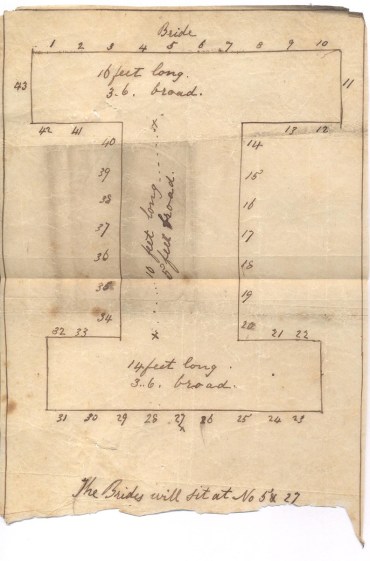 Bride
1 2 3 4 5 6 7 8 9 10
16 feet long.
3.6. broad.
43
11
42 41
13 12
40
14
39
15
38
16
37
17
36
18
35
19
34
20
10 feet long
5 feet broad.
32 33
21 22
14 feet long.
3..6. broad.
31 30 29 28 27 26 25 24 23
x
The Brides will sit at No 5 & 27